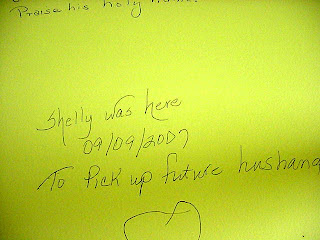 Praise his holy name.
Shelly was here
09/09/2007
To Pick up future husband